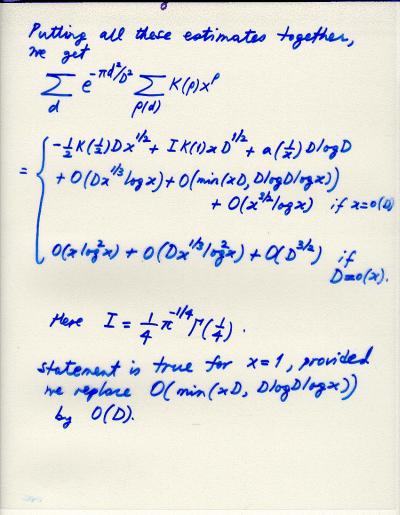 Putting all these estimates together,
we get
∑_d e^{-πd²/D²} ∑_{ρ(d)} K(ρ)x^ρ
= { -½K(½)Dx^{1/2} + IK(1)xD^{1/2} + a(1/x)DlogD
+ O(Dx^{1/3}logx) + O(min(xD, DlogDlogx))
+ O(x^{3/2}logx) if x=o(D)
O(xlog²x) + O(Dx^{1/3}log²x) + O(D^{3/2}) if
D=o(x).
Here I = ¼π^{-1/4}Γ(¼).
statement is true for x=1, provided
we replace O(min(xD, DlogDlogx))
by O(D).